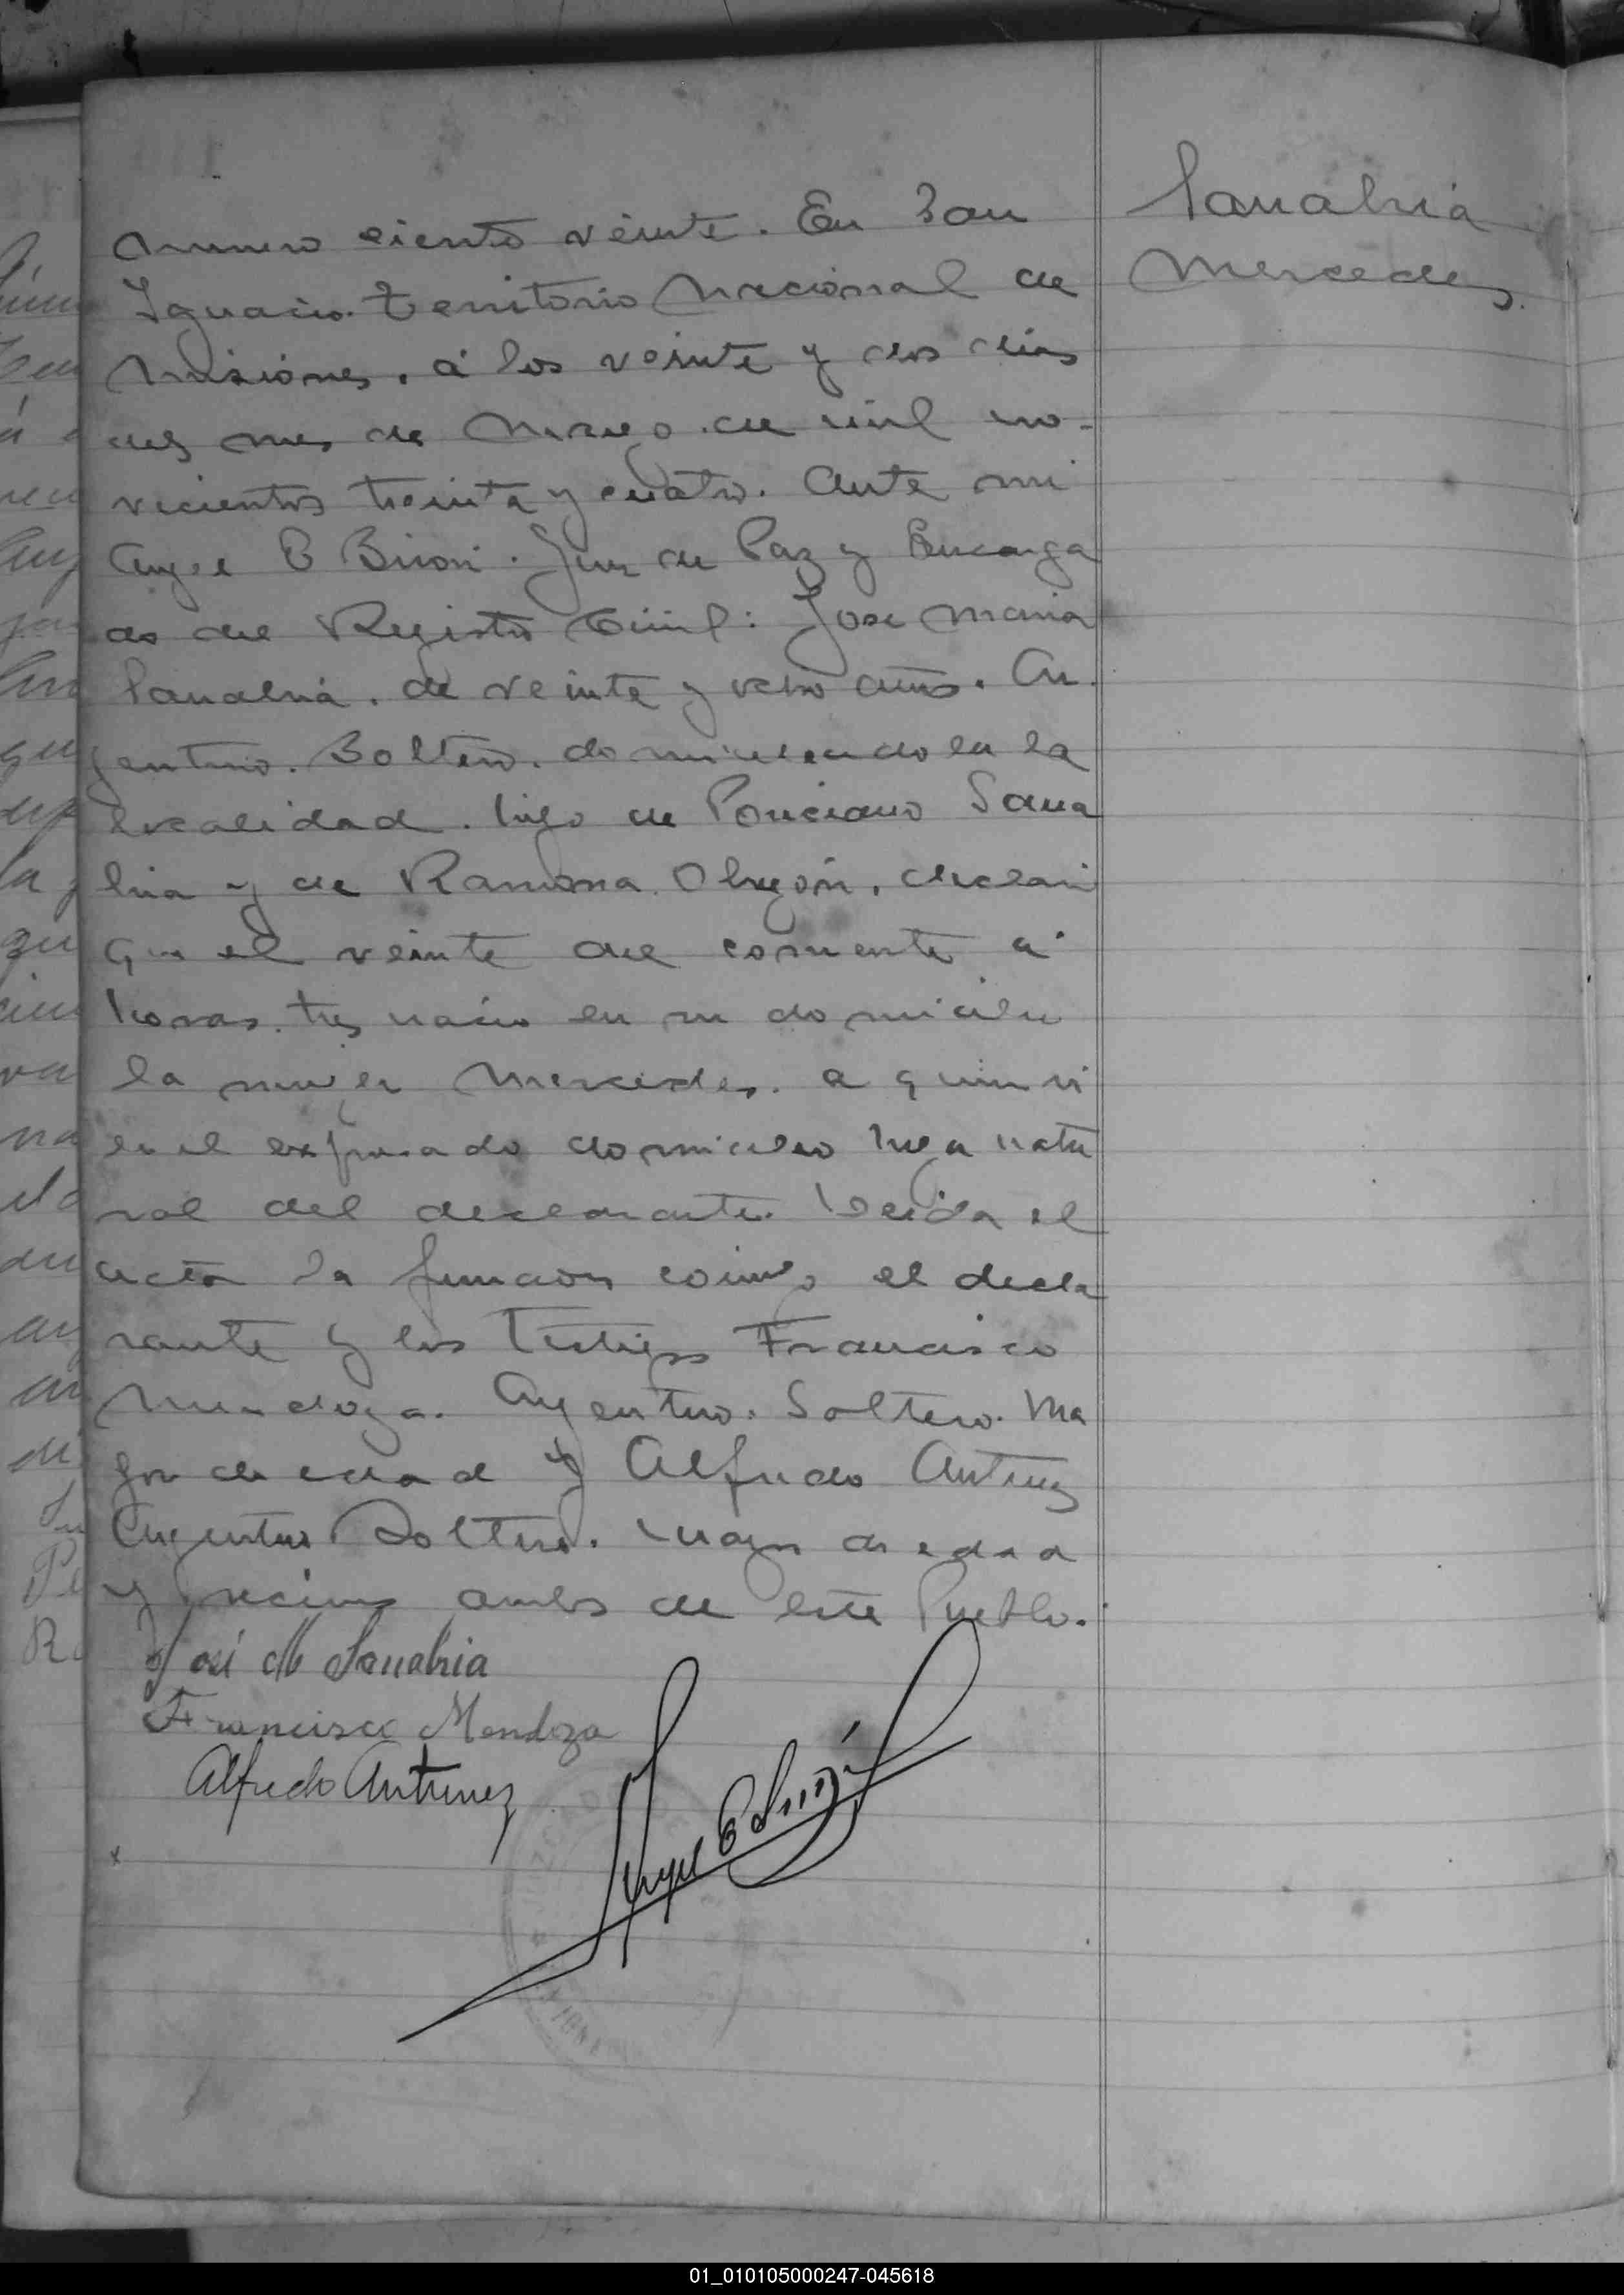 Sanabria
Mercedes.
Numero ciento veinte. En San
Ignacio. Territorio Nacional de
Misiones. á los veinte y dos dias
del mes de Marzo de mil no-
vecientos treinta y cuatro. Ante mi
Angel E Juez de Paz y Encarga
do del Registro Civil: Jose Maria
Sanabria. de veinte y ocho años. Ar
gentino. Soltero. domiciliado en la
localidad. hijo de Ponciano Sana
bria y de Ramona Obregón. declaró
que el veinte del corriente a
horas. tres nacio en su domicilio
la mujer Mercedes. a quien vi
en el expresado domicilio hija natu
ral del declarante. Leida el
acta la firmaron conmigo el decla
rante y los testigos Francisco
Mendoza. Argentino. Soltero. Ma
yor de edad y Alfredo Antunez
Argentino Soltero. mayor de edad
y vecinos ambos de este Pueblo.
José M Sanabria
Francisco Mendoza
Alfredo Antunez
Angel E
01_010105000247-045618